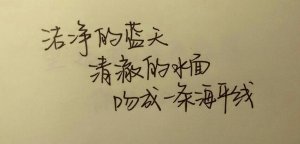 洁净的蓝天
清澈的水面
吻成一条海平线